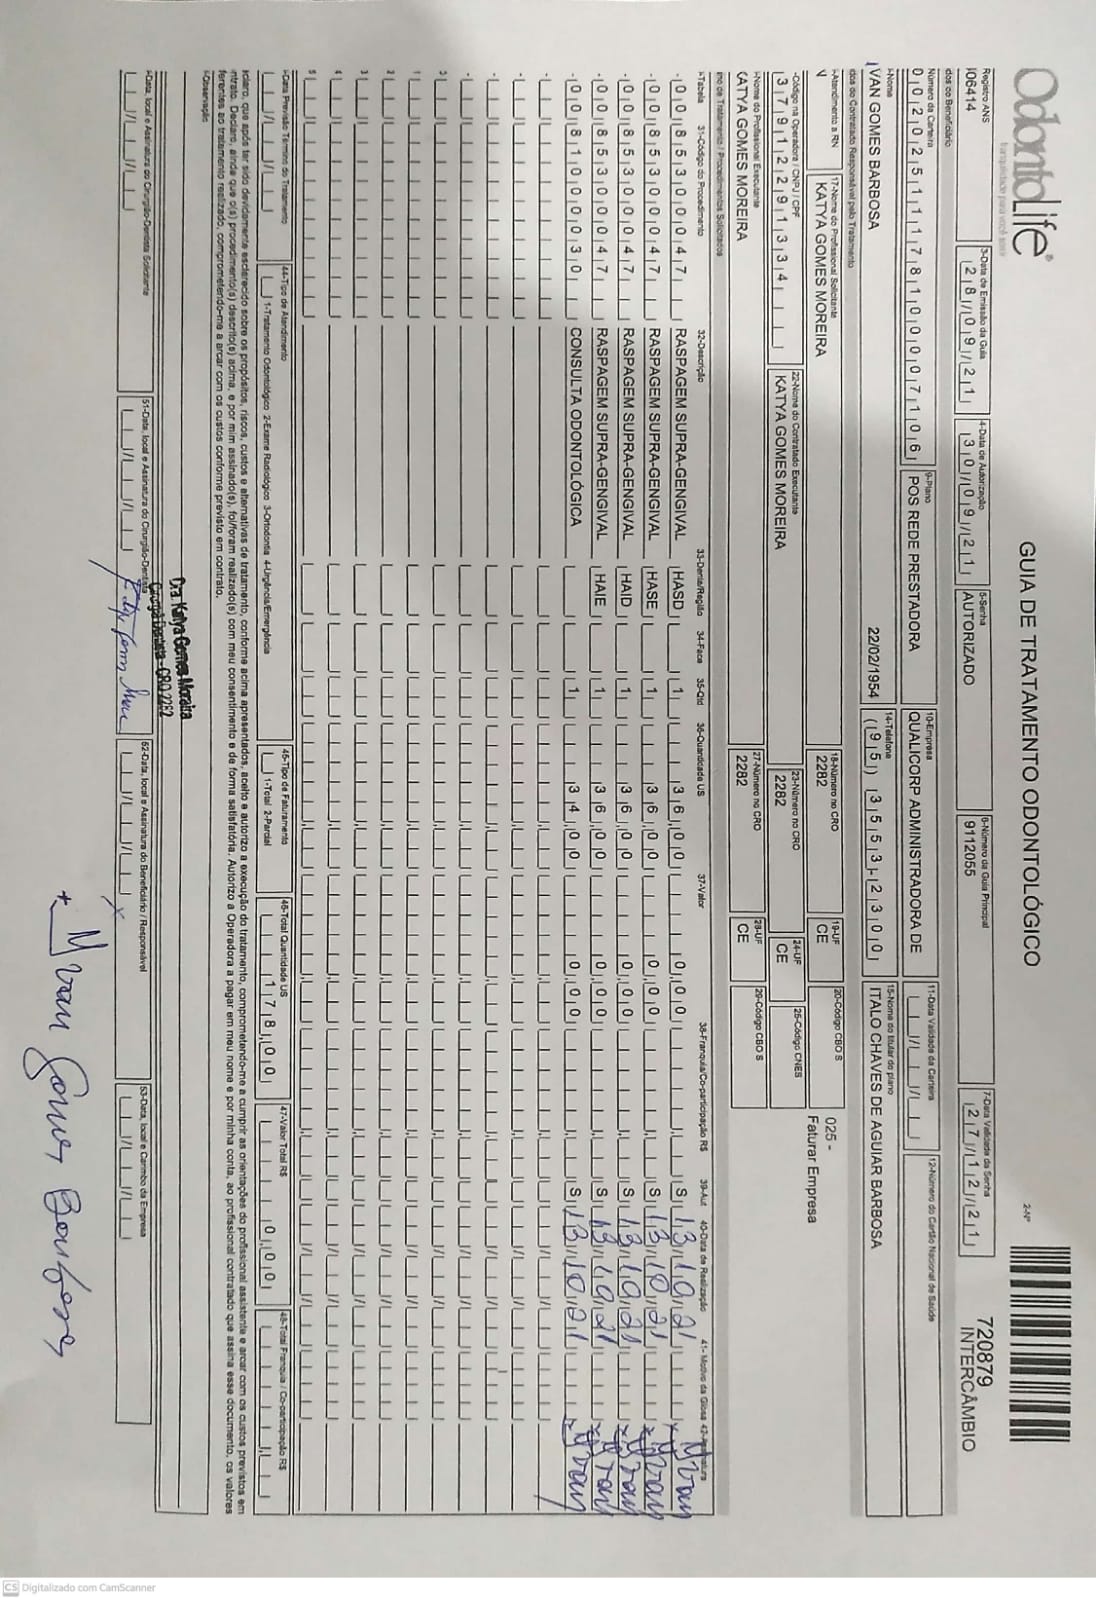 OdontoLife®
tranquilidade para você sorrir
GUIA DE TRATAMENTO ODONTOLÓGICO
2-Nº
720879
INTERCÂMBIO
Registro ANS
306414
3-Data de Emissão da Guia
28/09/21
4-Data de Autorização
30/09/21
5-Senha
AUTORIZADO
6-Número da Guia Principal
9112055
7-Data Validade da Senha
27/12/21
dos do Beneficiário
Número da Carteira
00202511178100007106
9-Plano
POS REDE PRESTADORA
10-Empresa
QUALICORP ADMINISTRADORA DE
11-Data Validade da Carteira
12-Número do Cartão Nacional de Saúde
3-Nome
IVAN GOMES BARBOSA
22/02/1954
14-Telefone
(95) 3553-2300
15-Nome do titular do plano
ITALO CHAVES DE AGUIAR BARBOSA
dos do Contratado Responsável pelo Tratamento
-Atendimento a RN
N
17-Nome do Profissional Solicitante
KATYA GOMES MOREIRA
18-Número no CRO
2282
19-UF
CE
20-Código CBO S
025 -
Faturar Empresa
-Código na Operadora / CNPJ / CPF
37912291334
22-Nome do Contratado Executante
KATYA GOMES MOREIRA
23-Número no CRO
2282
24-UF
CE
25-Código CNES
-Nome do Profissional Executante
KATYA GOMES MOREIRA
27-Número no CRO
2282
28-UF
CE
29-Código CBO S
no de Tratamento / Procedimentos Solicitados
-Tabela 31-Código do Procedimento 32-Descrição 33-Dente/Região 34-Face 35-Qtd 36-Quantidade US 37-Valor 38-Franquia/Co-participação R$ 39-Aut 40-Data de Realização 41-Motivo da Glosa 42-Assinatura
-00 85300047 RASPAGEM SUPRA-GENGIVAL HASD 1 36,00 0,00 S 13/10/21 x Ivan
-00 85300047 RASPAGEM SUPRA-GENGIVAL HASE 1 36,00 0,00 S 13/10/21 x Ivan
-00 85300047 RASPAGEM SUPRA-GENGIVAL HAID 1 36,00 0,00 S 13/10/21 x Ivan
-00 85300047 RASPAGEM SUPRA-GENGIVAL HAIE 1 36,00 0,00 S 13/10/21 x Ivan
-00 81000030 CONSULTA ODONTOLÓGICA 1 34,00 0,00 S 13/10/21 x Ivan
-Data Previsão Término do Tratamento
44-Tipo de Atendimento
1-Tratamento Odontológico 2-Exame Radiológico 3-Ortodontia 4-Urgência/Emergência
45-Tipo de Faturamento
1-Total 2-Parcial
46-Total Quantidade US
178,00
47-Valor Total R$
0,00
48-Total Franquia / Co-participação R$
eclaro, que após ter sido devidamente esclarecido sobre os propósitos, riscos, custos e alternativas de tratamento, conforme acima apresentados, aceito e autorizo a execução do tratamento, comprometendo-me a cumprir as orientações do profissional assistente e arcar com os custos previstos em
ntrato. Declaro, ainda que o(s) procedimento(s) descrito(s) acima, e por mim assinado(s), foi/foram realizado(s) com meu consentimento e de forma satisfatória. Autorizo a Operadora a pagar em meu nome e por minha conta, ao profissional contratado que assina esse documento, os valores
ferentes ao tratamento realizado, comprometendo-me a arcar com os custos conforme previsto em contrato.
-Observação
Dra. Katya Gomes Moreira
Cirurgiã-Dentista - CRO 2282
-Data, local e Assinatura do Cirurgião-Dentista Solicitante
51-Data, local e Assinatura do Cirurgião-Dentista
52-Data, local e Assinatura do Beneficiário / Responsável
53-Data, local e Carimbo da Empresa
x
+ Ivan Gomes Barbosa
CS Digitalizado com CamScanner